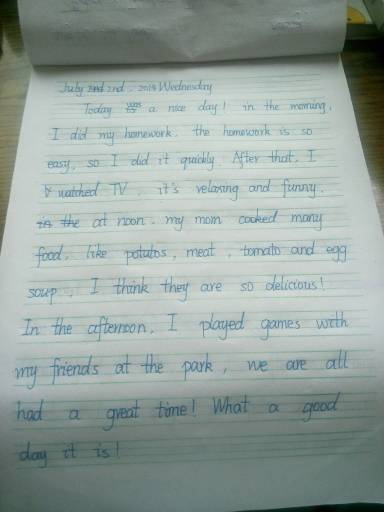 July 2nd. 2014 Wednesday
Today was a nice day! in the morning,
I did my homework. the homework is so
easy, so I did it quickly. After that, I
watched TV, it's relaxing and funny.
at noon. my mom cooked many
food. like potatos, meat, tomato and egg
soup. I think they are so delicious!
In the afternoon, I played games with
my friends at the park, we are all
had a great time! What a good
day it is!